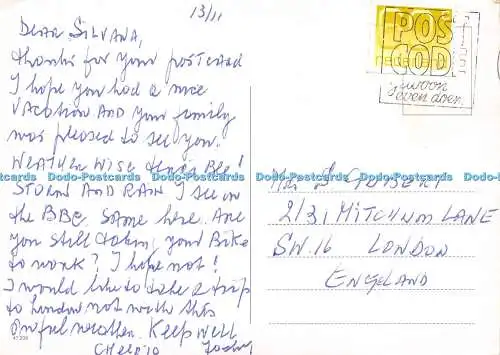 13/11
DEAR SILVANA,
thanks for your postcard
I hope you had a nice
VACATION AND your family
was pleased to see you.
WEATHER WISE
STORM AND RAIN I see on
the BBC. Same here. Are
you still takin, your Bike
to work? I hope not!
I would like to take a trip
to London not with this
awful weather. Keep well
CHEERIO
POS
COD
nederland
gewoon
even doen.
2/31 MITCHUM LANE
SW.16 LONDON
ENGELAND
Dodo-Postcards Dodo-Postcards Dodo-Postcards Dodo-Postcards Dodo-Postcards